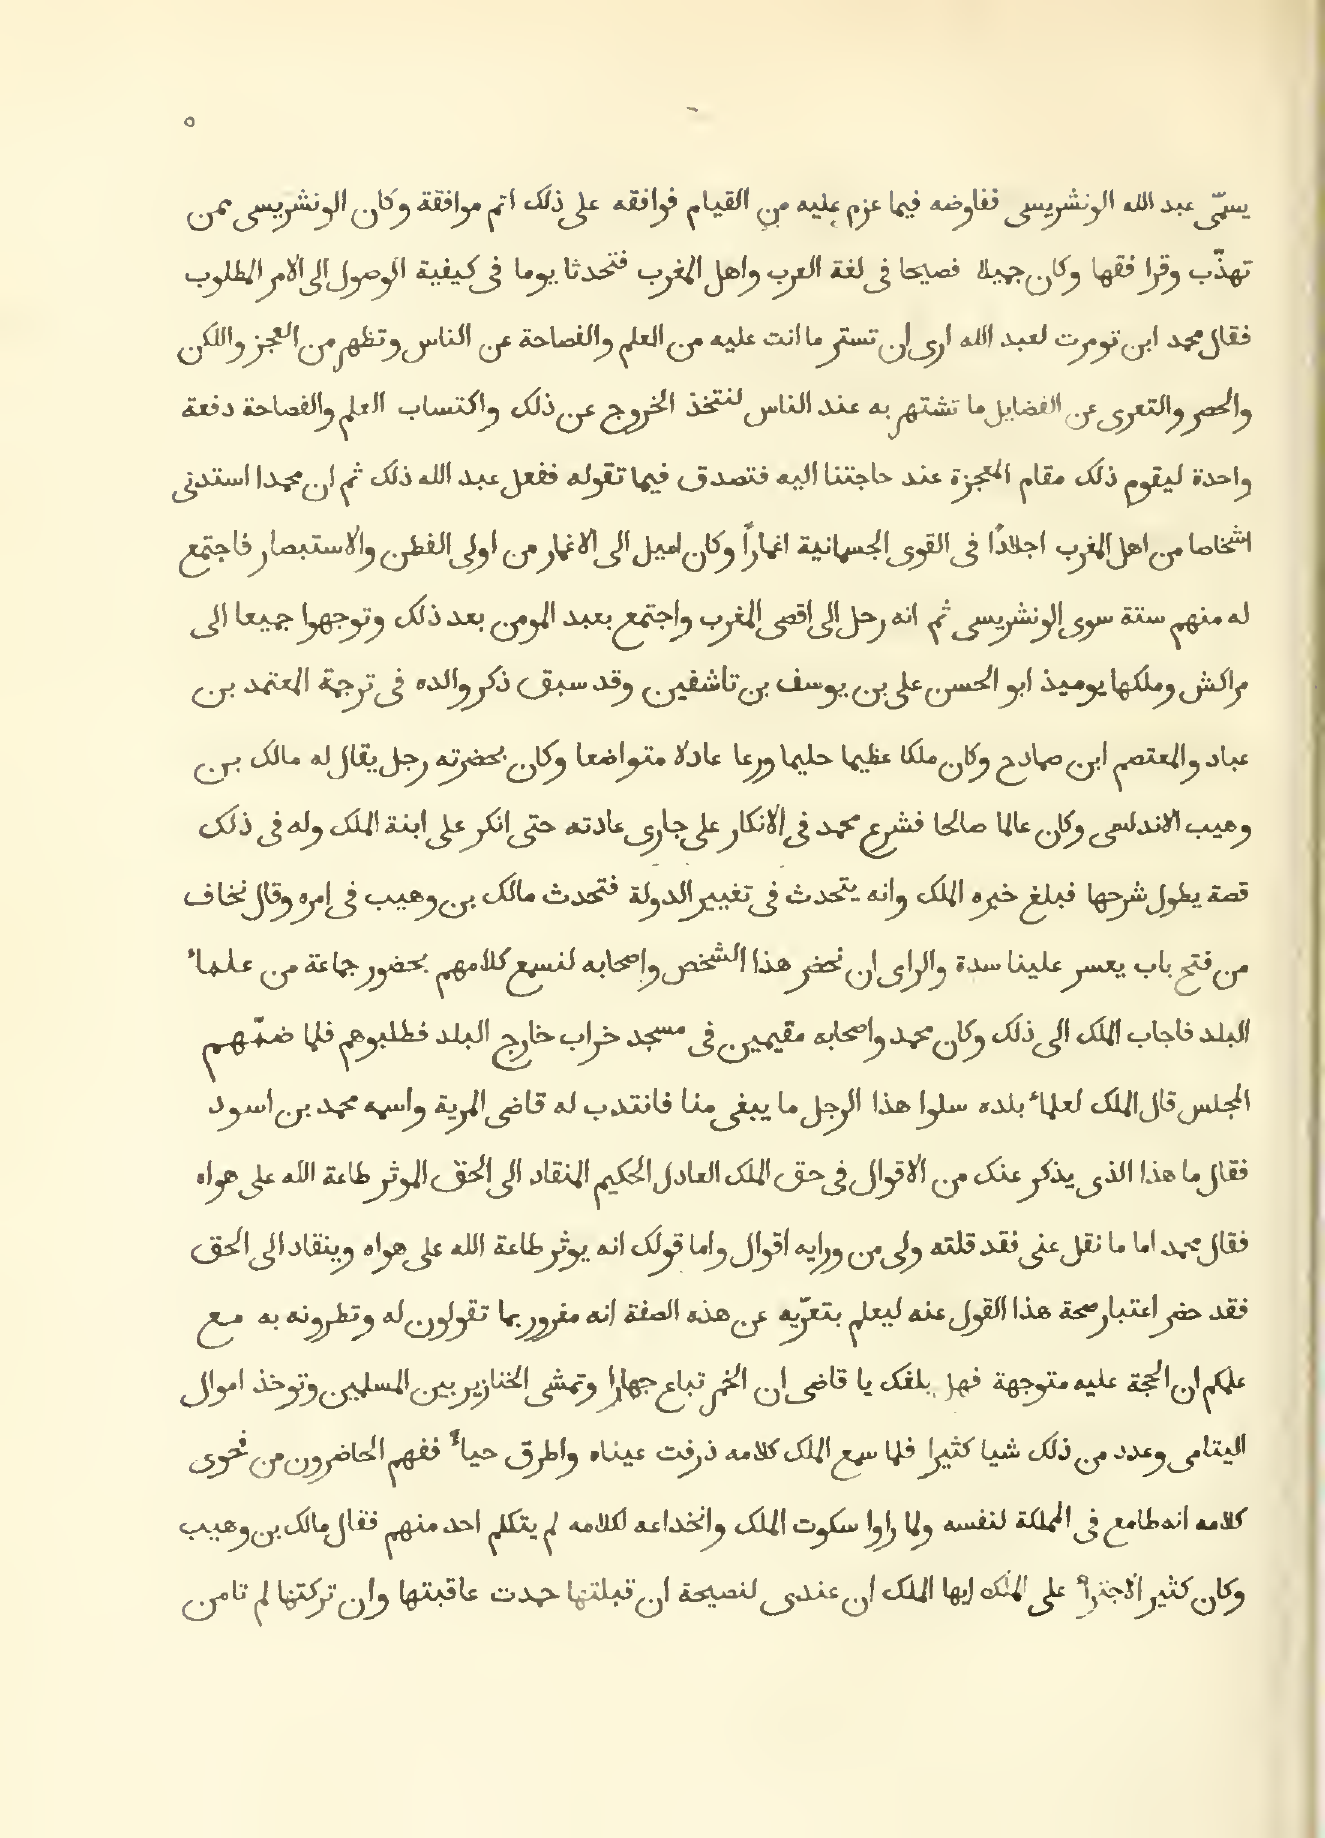 ٥
يسمّى عبد الله الونشريسى ففاوضه فيما عزم عليه من القيام فوافقه على ذلك اتم موافقة وكان الونشريسى ممن
تهذّب وقرا فقها وكان جميلا فصيحا فى لغة العرب واهل المغرب فتحدثا يوما فى كيفية الوصول الى الامر المطلوب
فقال محمد ابن تومرت لعبد الله ارى ان تستر ما انت عليه من العلم والفصاحة عن الناس وتظهر من العجز واللكن
والحصر والتعرى عن الفضايل ما تشتهر به عند الناس لنتخذ الخروج عن ذلك واكتساب العلم والفصاحة دفعة
واحدة ليقوم ذلك مقام المعجزة عند حاجتنا اليه فتصدق فيما تقوله ففعل عبد الله ذلك ثم ان محمدا استدنى
اشخاصا من اهل المغرب اجلادًا فى القوى الجسمانية اغمارًا وكان اميل الى الاغمار من اولى الفطن والاستبصار فاجتمع
له منهم ستة سوى الونشريسى ثم انه رحل الى اقصى المغرب واجتمع بعبد المومن بعد ذلك وتوجهوا جميعا الى
مراكش وملكها يوميذ ابو الحسن على بن يوسف بن تاشفين وقد سبق ذكر والده فى ترجمة المعتمد بن
عباد والمعتصم ابن صمادح وكان ملكا عظيما حليما ورعا عادلا متواضعا وكان بحضرته رجل يقال له مالك بن
وهيب الاندلسى وكان عالما صالحا فشرع محمد فى الانكار على جارى عادته حتى انكر على ابنة الملك وله فى ذلك
قصة يطول شرحها فبلغ خبره الملك وانه يتحدث فى تغيير الدولة فتحدث مالك بن وهيب فى امره وقال نخاف
من فتح باب يعسر علينا سدة والراى ان نحضر هذا الشخص واصحابه لنسمع كلامهم بحضور جماعة من علماء
البلد فاجاب الملك الى ذلك وكان محمد واصحابه مقيمين فى مسجد خراب خارج البلد فطلبوهم فلما ضمّهم
المجلس قال الملك لعلماء بلده سلوا هذا الرجل ما يبغى منا فانتدب له قاضى المرية واسمه محمد بن اسود
فقال ما هذا الذى يذكر عنك من الاقوال فى حق الملك العادل الحكيم المنقاد الى الحق الموثر طاعة الله على هواه
فقال محمد اما ما نقل عنى فقد قلته ولى من ورايه اقوال واما قولك انه يوثر طاعة الله على هواه وينقاد الى الحق
فقد حضر اعتبار صحة هذا القول عنه ليعلم بتعرّيه عن هذه الصفة انه مغرور بما تقولون له وتطرونه به مع
علمكم ان الحجة عليه متوجهة فهل بلغك يا قاضى ان الخمر تباع جهارا وتمشى الخنازير بين المسلمين وتوخذ اموال
اليتامى وعدد من ذلك شيا كثيرا فلما سمع الملك كلامه ذرفت عيناه واطرق حياءً ففهم الحاضرون من فحوى
كلامه انه طامع فى المملكة لنفسه ولما راوا سكوت الملك وانخداعه لكلامه لم يتكلم احد منهم فقال مالك بن وهيب
وكان كثير الاجتراء على الملك ايها الملك ان عندى لنصيحة ان قبلتها حمدت عاقبتها وان تركتها لم تامن